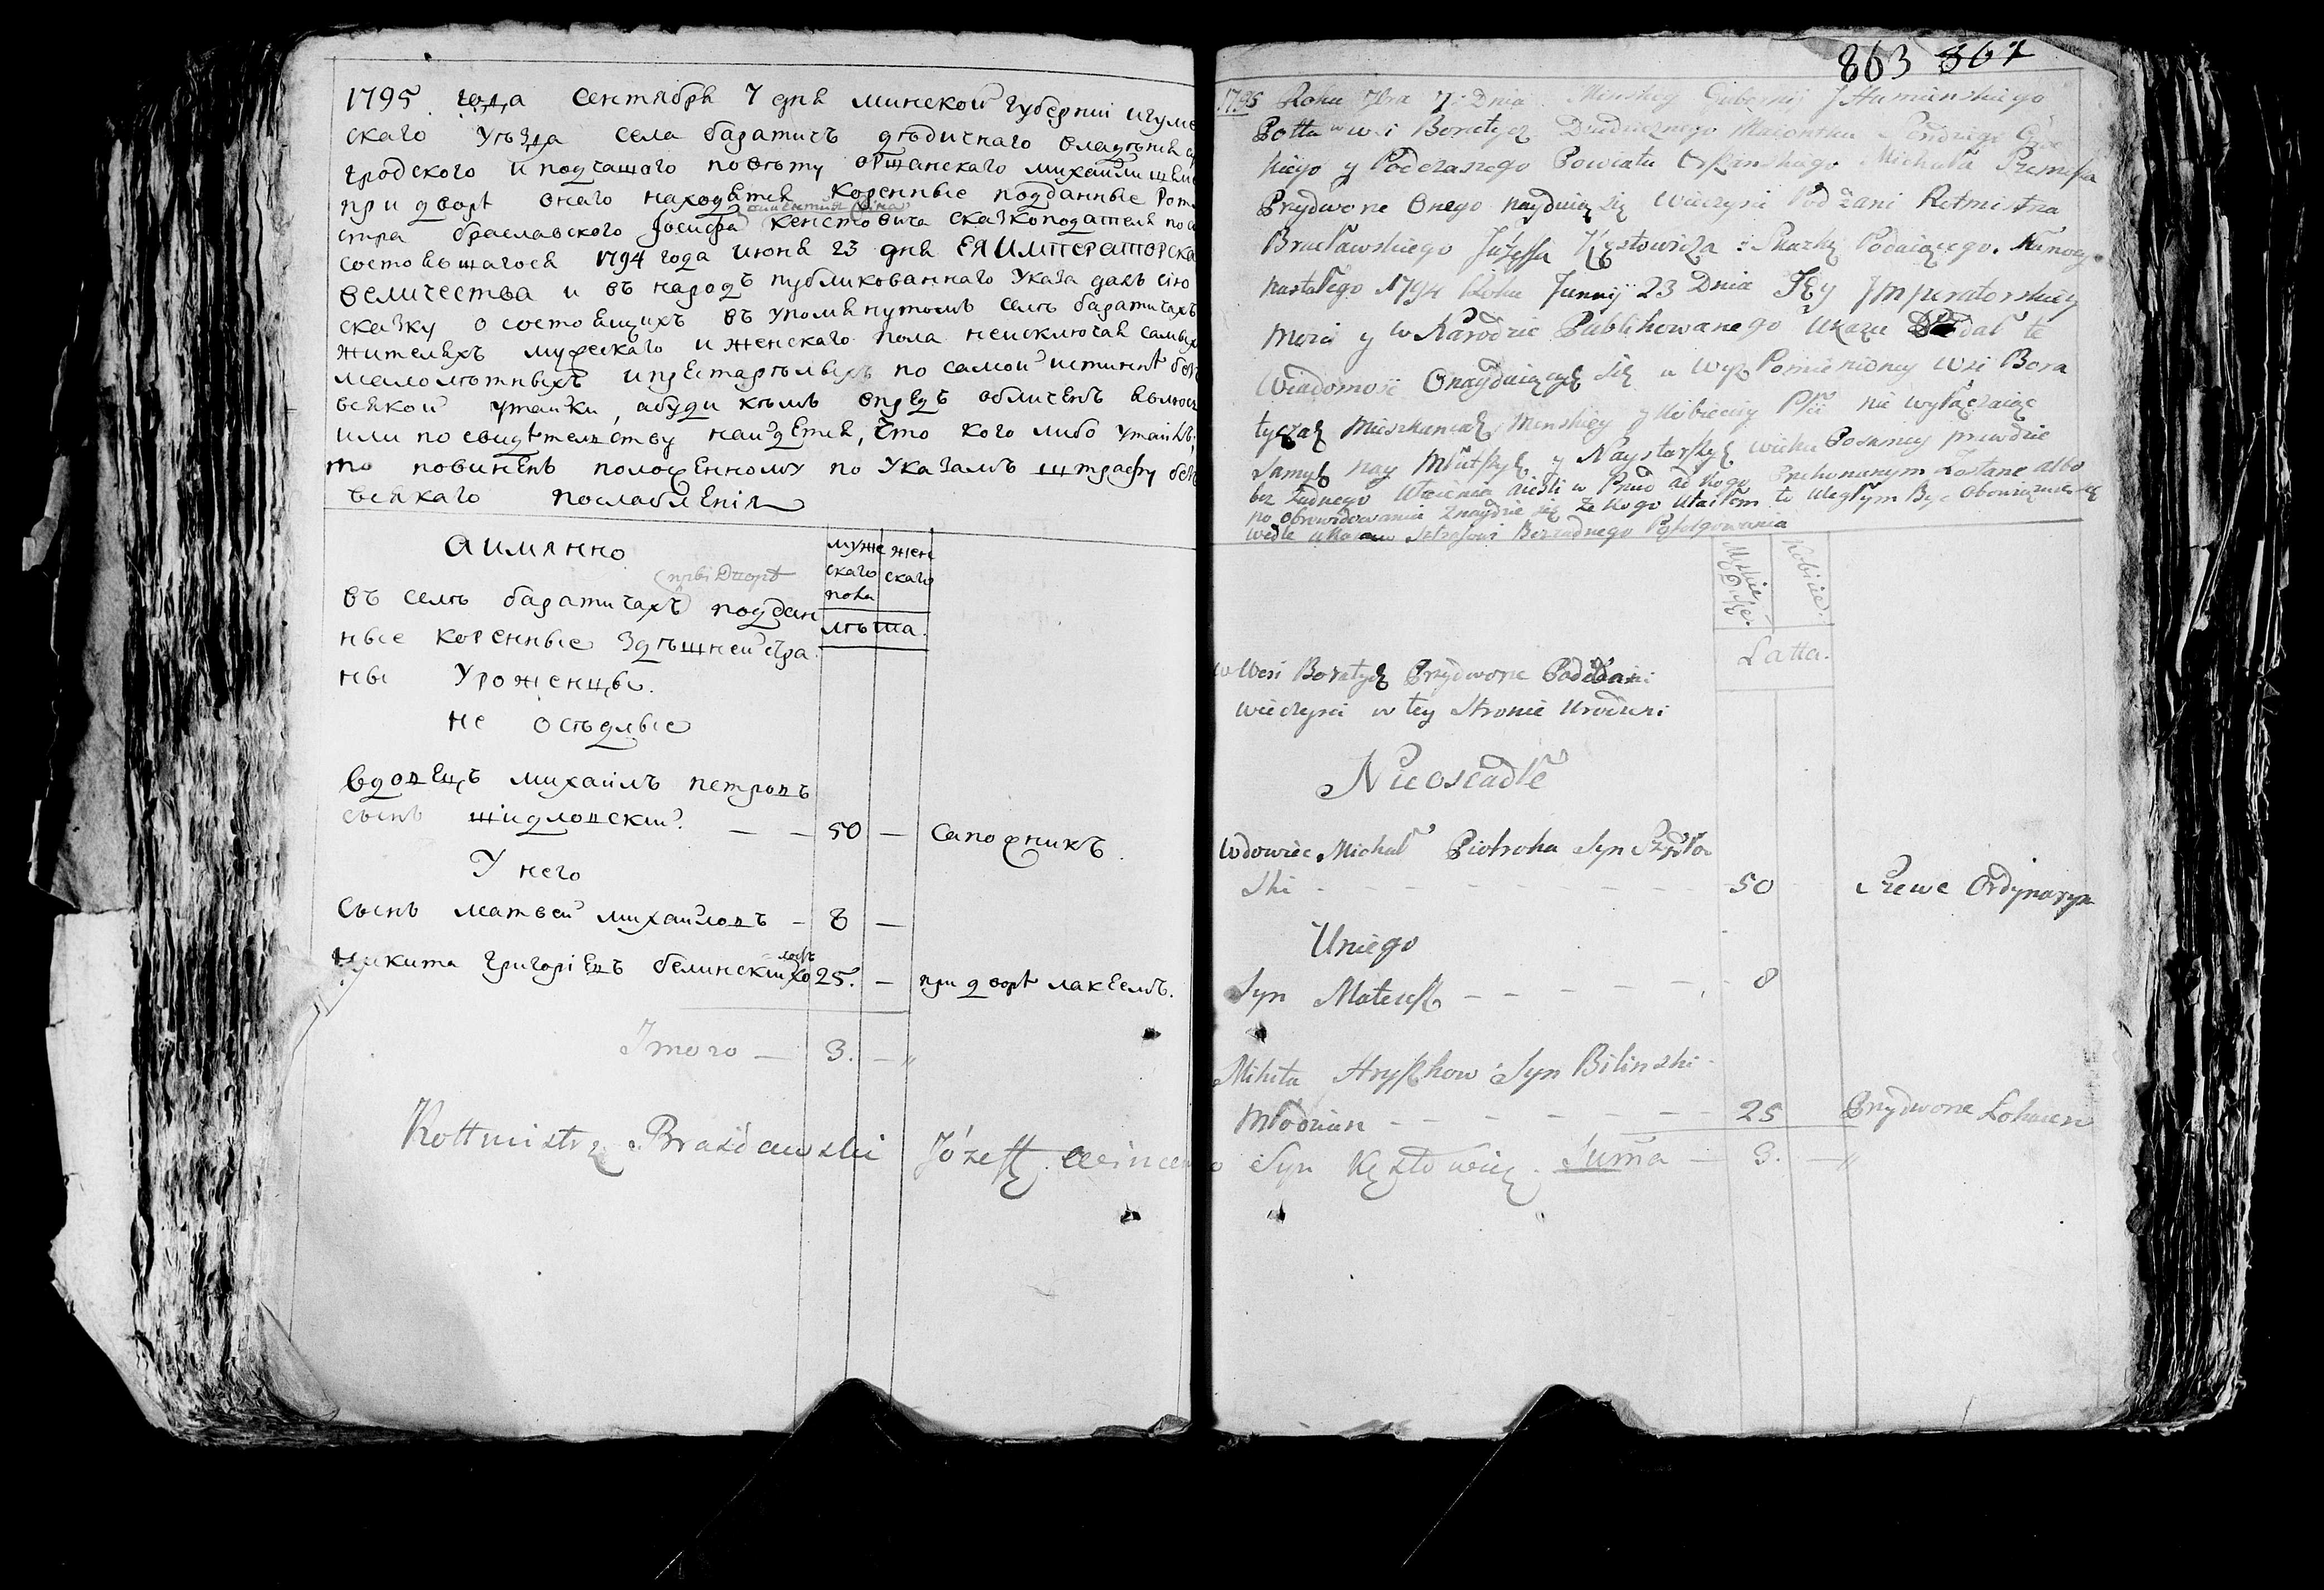 1795 года Сентября 7 дня минской губерніи игуме
скаго уѣзда села баратичъ дѣдичнаго владѣнія
гродского и подчашого повѣту оршанскаго михайлы
при дворѣ онаго находятся коренные подданные Рот
викентия сына
мстра браславского Іосифа кенстовича сказкоподателя по
состоявшагося 1794 года июня 23 дня ЕЯ ИМПЕРАТОРСКА
величества и въ народъ публикованнаго указа далъ сію
сказку о состоящихъ въ упомянутомъ селѣ баратичахъ
жителяхъ мужескаго и женскаго пола неисключая самыхъ
малолѣтныхъ и престарѣлыхъ по самой истиннѣ безъ
всякой утайки, а буди кѣмъ впредь обличенъ
или по свидѣтельству найдется, что кого либо утаилъ,
то повиненъ положенному по указамъ штрафу безъ
всякаго послабленія
863 867
1795 Roku 7bra 7 Dnia Minskiey Gubernij Jhumenskiego
Pottu w wsi Boratycz Dziedzicznego Maiontku
kiego y Podczaszego Powiatu Orszanskiego Michała
Przydworze Onego nayduią się Wieczyści Poddani Rotmistrza
Bracławskiego Józeffa Kęstowicza Skazkę Podaiącego. Na mocy
nastałego 1794 Roku Junnij 23 Dnia Jey Jmperatorskiey
Mości y w Narodzie Publikowanego Ukazu Podał te
Wiadomość Onayduiących się w Wyż Pomienioney Wsi Bora
tyczach Mieszkancach Menskiey y Kobieciey Płci nie wyłączaiąc
Samych nay Młotszych y Naystarszych wieku Posamey prawdzie
bez żadnego Utaienia Jieżli w Przod od kogo Przekonanym Zostane albo
po obrewidowaniu Znaydzie się że kogo Utaiłem to Uległym Być Obowiązuie się
wedle Ukazow Sztrafowi Bezżadnego Pofolgowania
аимянно
муже жен
скаго скаго
пола
лѣта.
при Дворѣ
въ селѣ баратичахъ поддан
ные коренные здѣшней стра
ны Уроженцы.
не осѣдлые
вдовецъ михайлъ петровъ
сынъ шидловский. — — 50 — сапожникъ.
У него
сынъ матвей михайловъ — 8 —
никита григоріевъ белинский 25. — при дворѣ лакеемъ.
Ітого — 3. — "
Męskie. Kobiece.
Latta.
w Wsi Boratycz Przydworze Poddani
wieczyści w tey Stronie Urodzeni
Nieosiadłe
Wdowiec Michał Piotroha Syn Szydło
Ski - - - 50 Szewc Ordynaryn
Uniego
Syn Mateusz - - - 8
Mikita Hryszkow Syn Bilinski
Młodzian - - - 25 Przydworze Lokaiem
Suma — 3. — "
Rottmistrz Brasławski Józeff Wincen o Syn Kęstowicz.